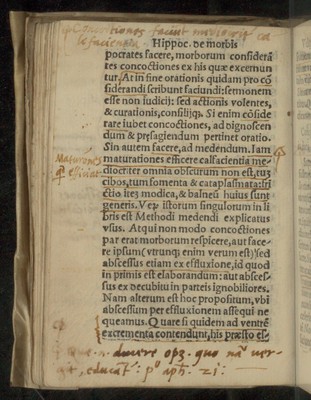 Concoctiones faciunt
Hippoc. de morbis
pocrates facere, morborum considerã
tes concoctiones ex his quæ excernun
tur. At in fine orationis quidam pro cõ
siderandi scribunt faciundi: sermonem
esse non iudicij: sed actionis volentes,
& curationis, consilijq;. Si enim cõside
rare iubet concoctiones, ad dignoscen
dum & præsagiendum pertinet oratio.
Sin autem facere, ad medendum. Iam
maturationes efficere calfacientia me-
diocriter omnia obscurum non est, tuȝ
cibos, tum fomenta & cataplasmata: fri
ctio iteȝ modica, & balneũ huius sunt
generis. Veȝ istorum singulorum in li
bris est Methodi medendi explicatus
vsus. Atqui non modo concoctiones
par erat morborum respicere, aut face-
re ipsum (vtrunq; enim verum est) sed
abscessus etiam ex effluxione, id quod
in primis est elaborandum: aut absces-
sus ex decubitu in parteis ignobiliores.
Nam alterum est hoc propositum, vbi
abscessum per effluxionem assequi ne
queamus. Quare si quidem ad ventrẽ
excrementa contendunt, his præsto es-
ducere quo